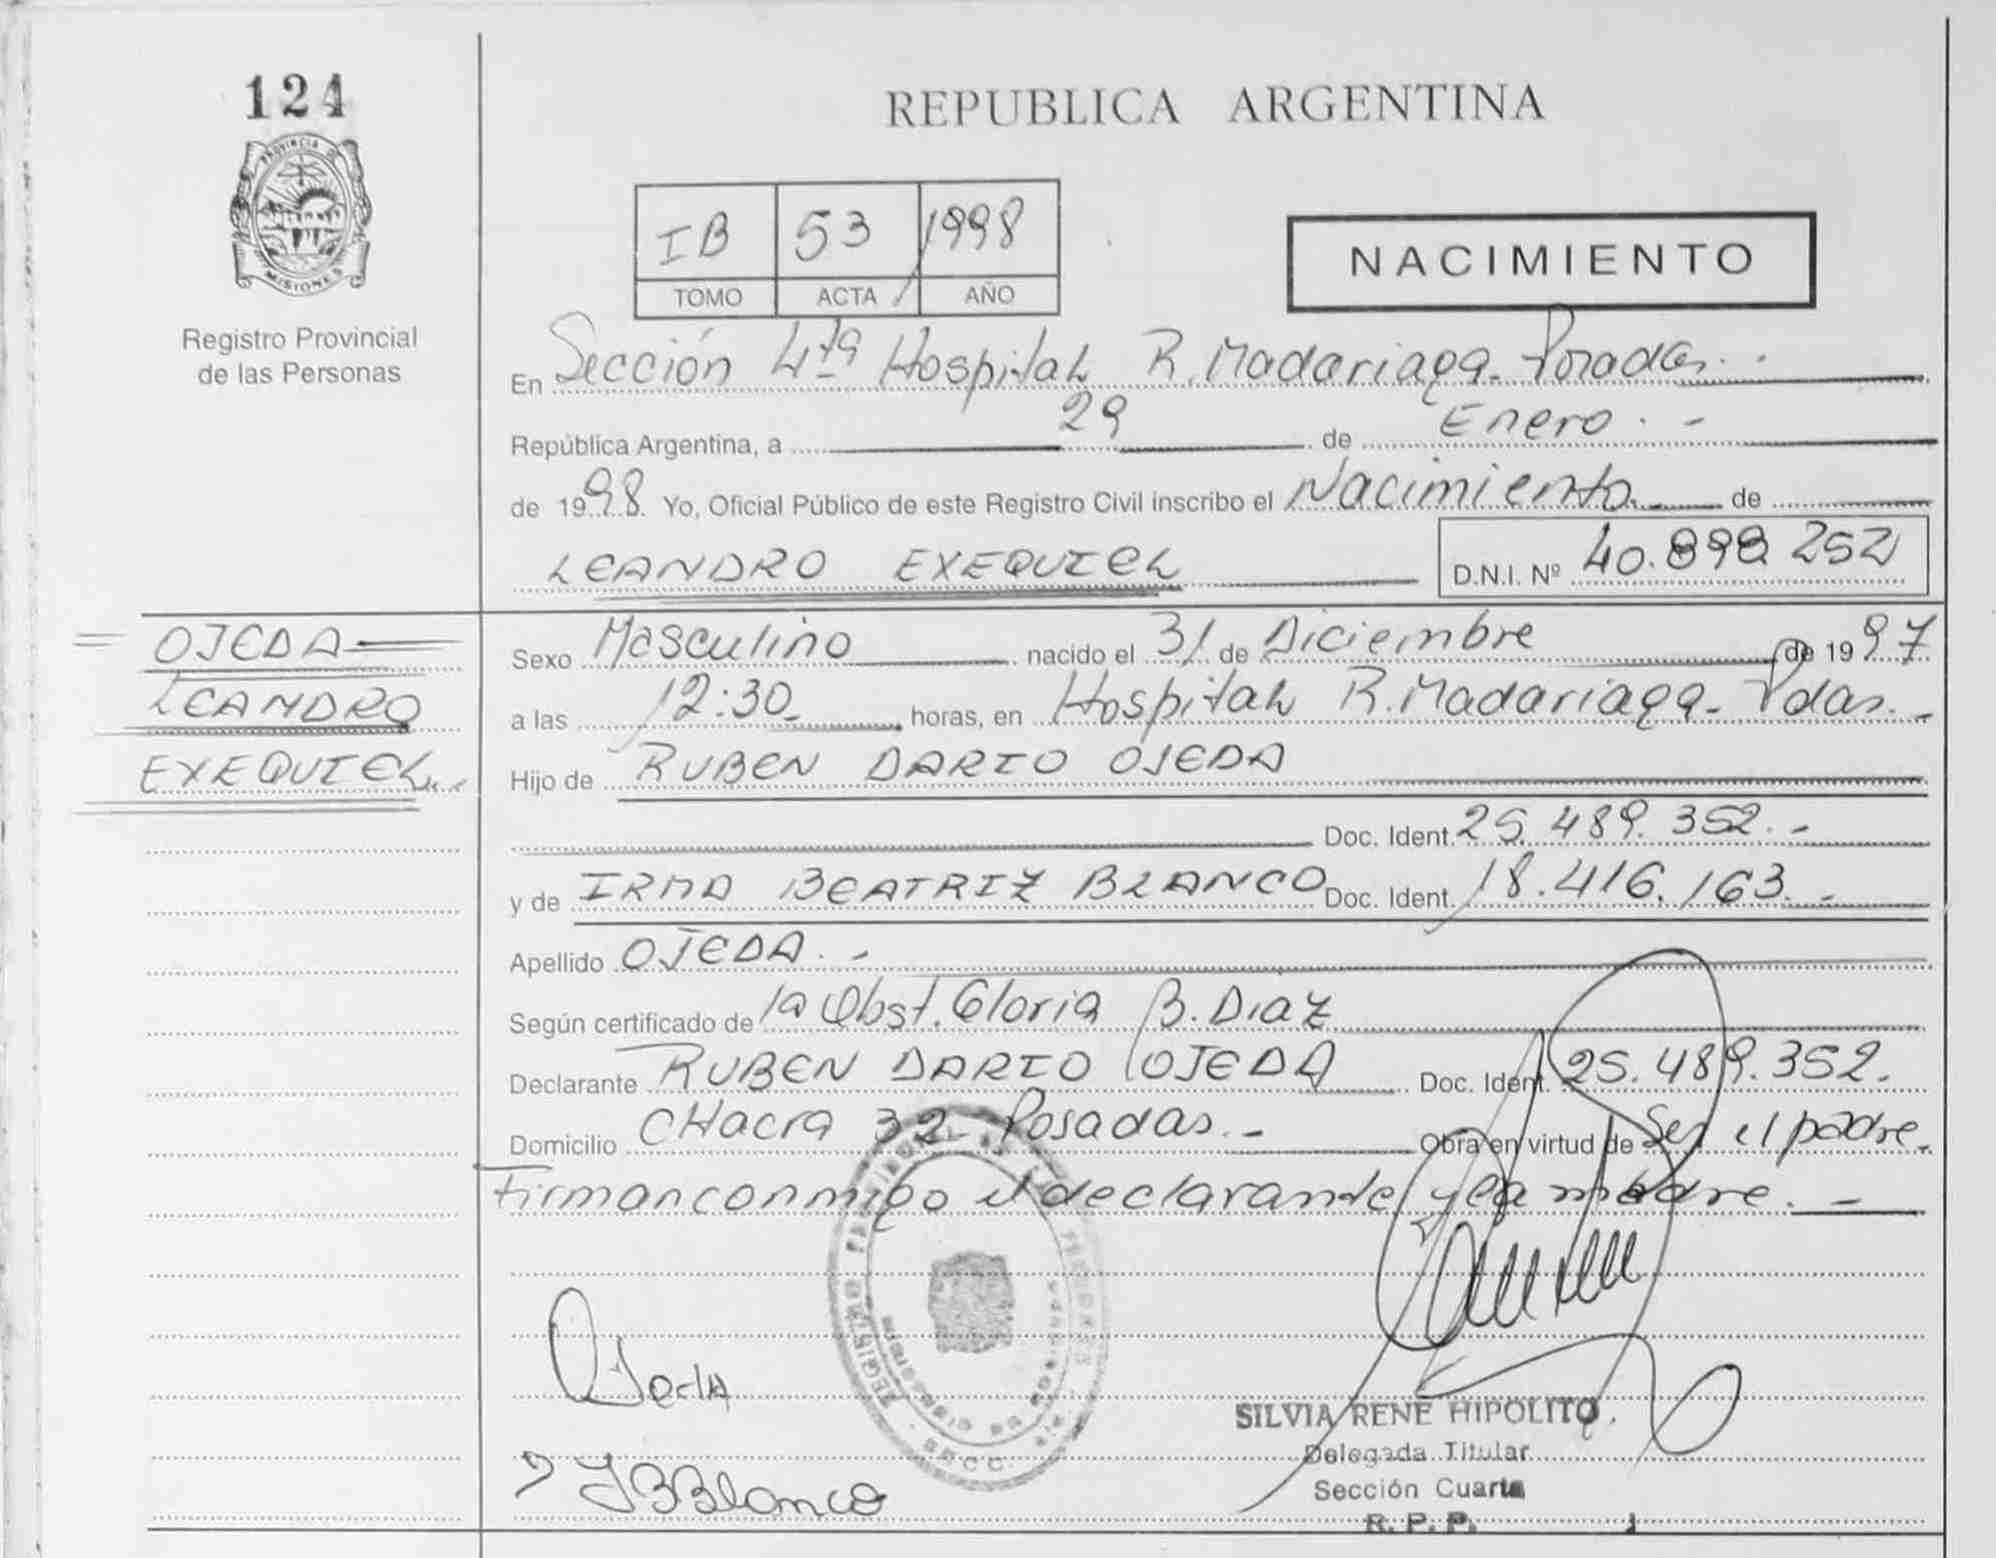 124
PROVINCIA DE
MISIONES
Registro Provincial
de las Personas
REPUBLICA ARGENTINA
IB 53 1998
TOMO ACTA AÑO
NACIMIENTO
En Sección 4ta Hospital R. Madariaga - Posadas. -
República Argentina, a 29 de Enero. -
de 1998. Yo, Oficial Público de este Registro Civil inscribo el Nacimiento de
LEANDRO EXEQUIEL D.N.I. Nº 40.898 252
OJEDA
LEANDRO
EXEQUIEL
Sexo Masculino nacido el 31 de Diciembre de 1997
a las 12:30 horas, en Hospital R. Madariaga - Pdas. -
Hijo de RUBEN DARIO OJEDA
Doc. Ident. 25.489.352. -
y de IRMA BEATRIZ BLANCO Doc. Ident. 18.416.163. -
Apellido OJEDA. -
Según certificado de la Obst. Gloria B. Diaz
Declarante RUBEN DARIO OJEDA Doc. Ident. 25.489.352.
Domicilio CHacra 32 Posadas. - Obra en virtud de Ser el padre.
firman conmigo el declarante y la madre. -
Ojeda
IBBlanco
SILVIA RENE HIPOLITO
Delegada Titular
Sección Cuarta
R. P. P.